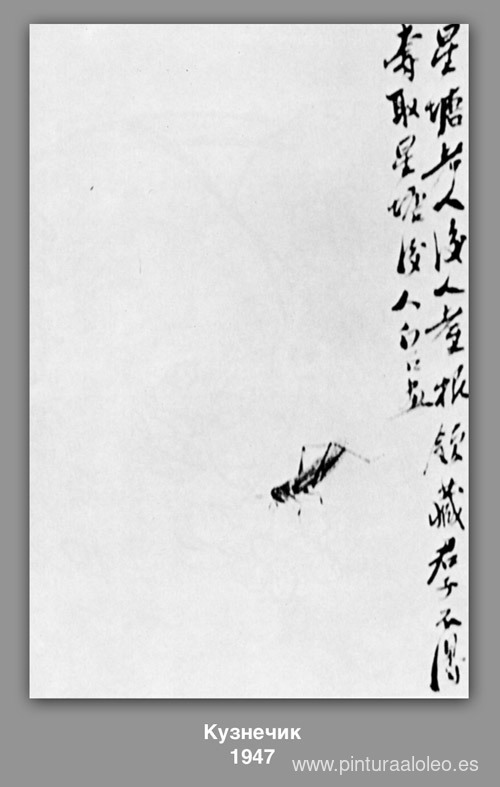 星塘老人後人根領藏君子不得
取星塘後人
Кузнечик
1947
www.pinturaaloleo.es